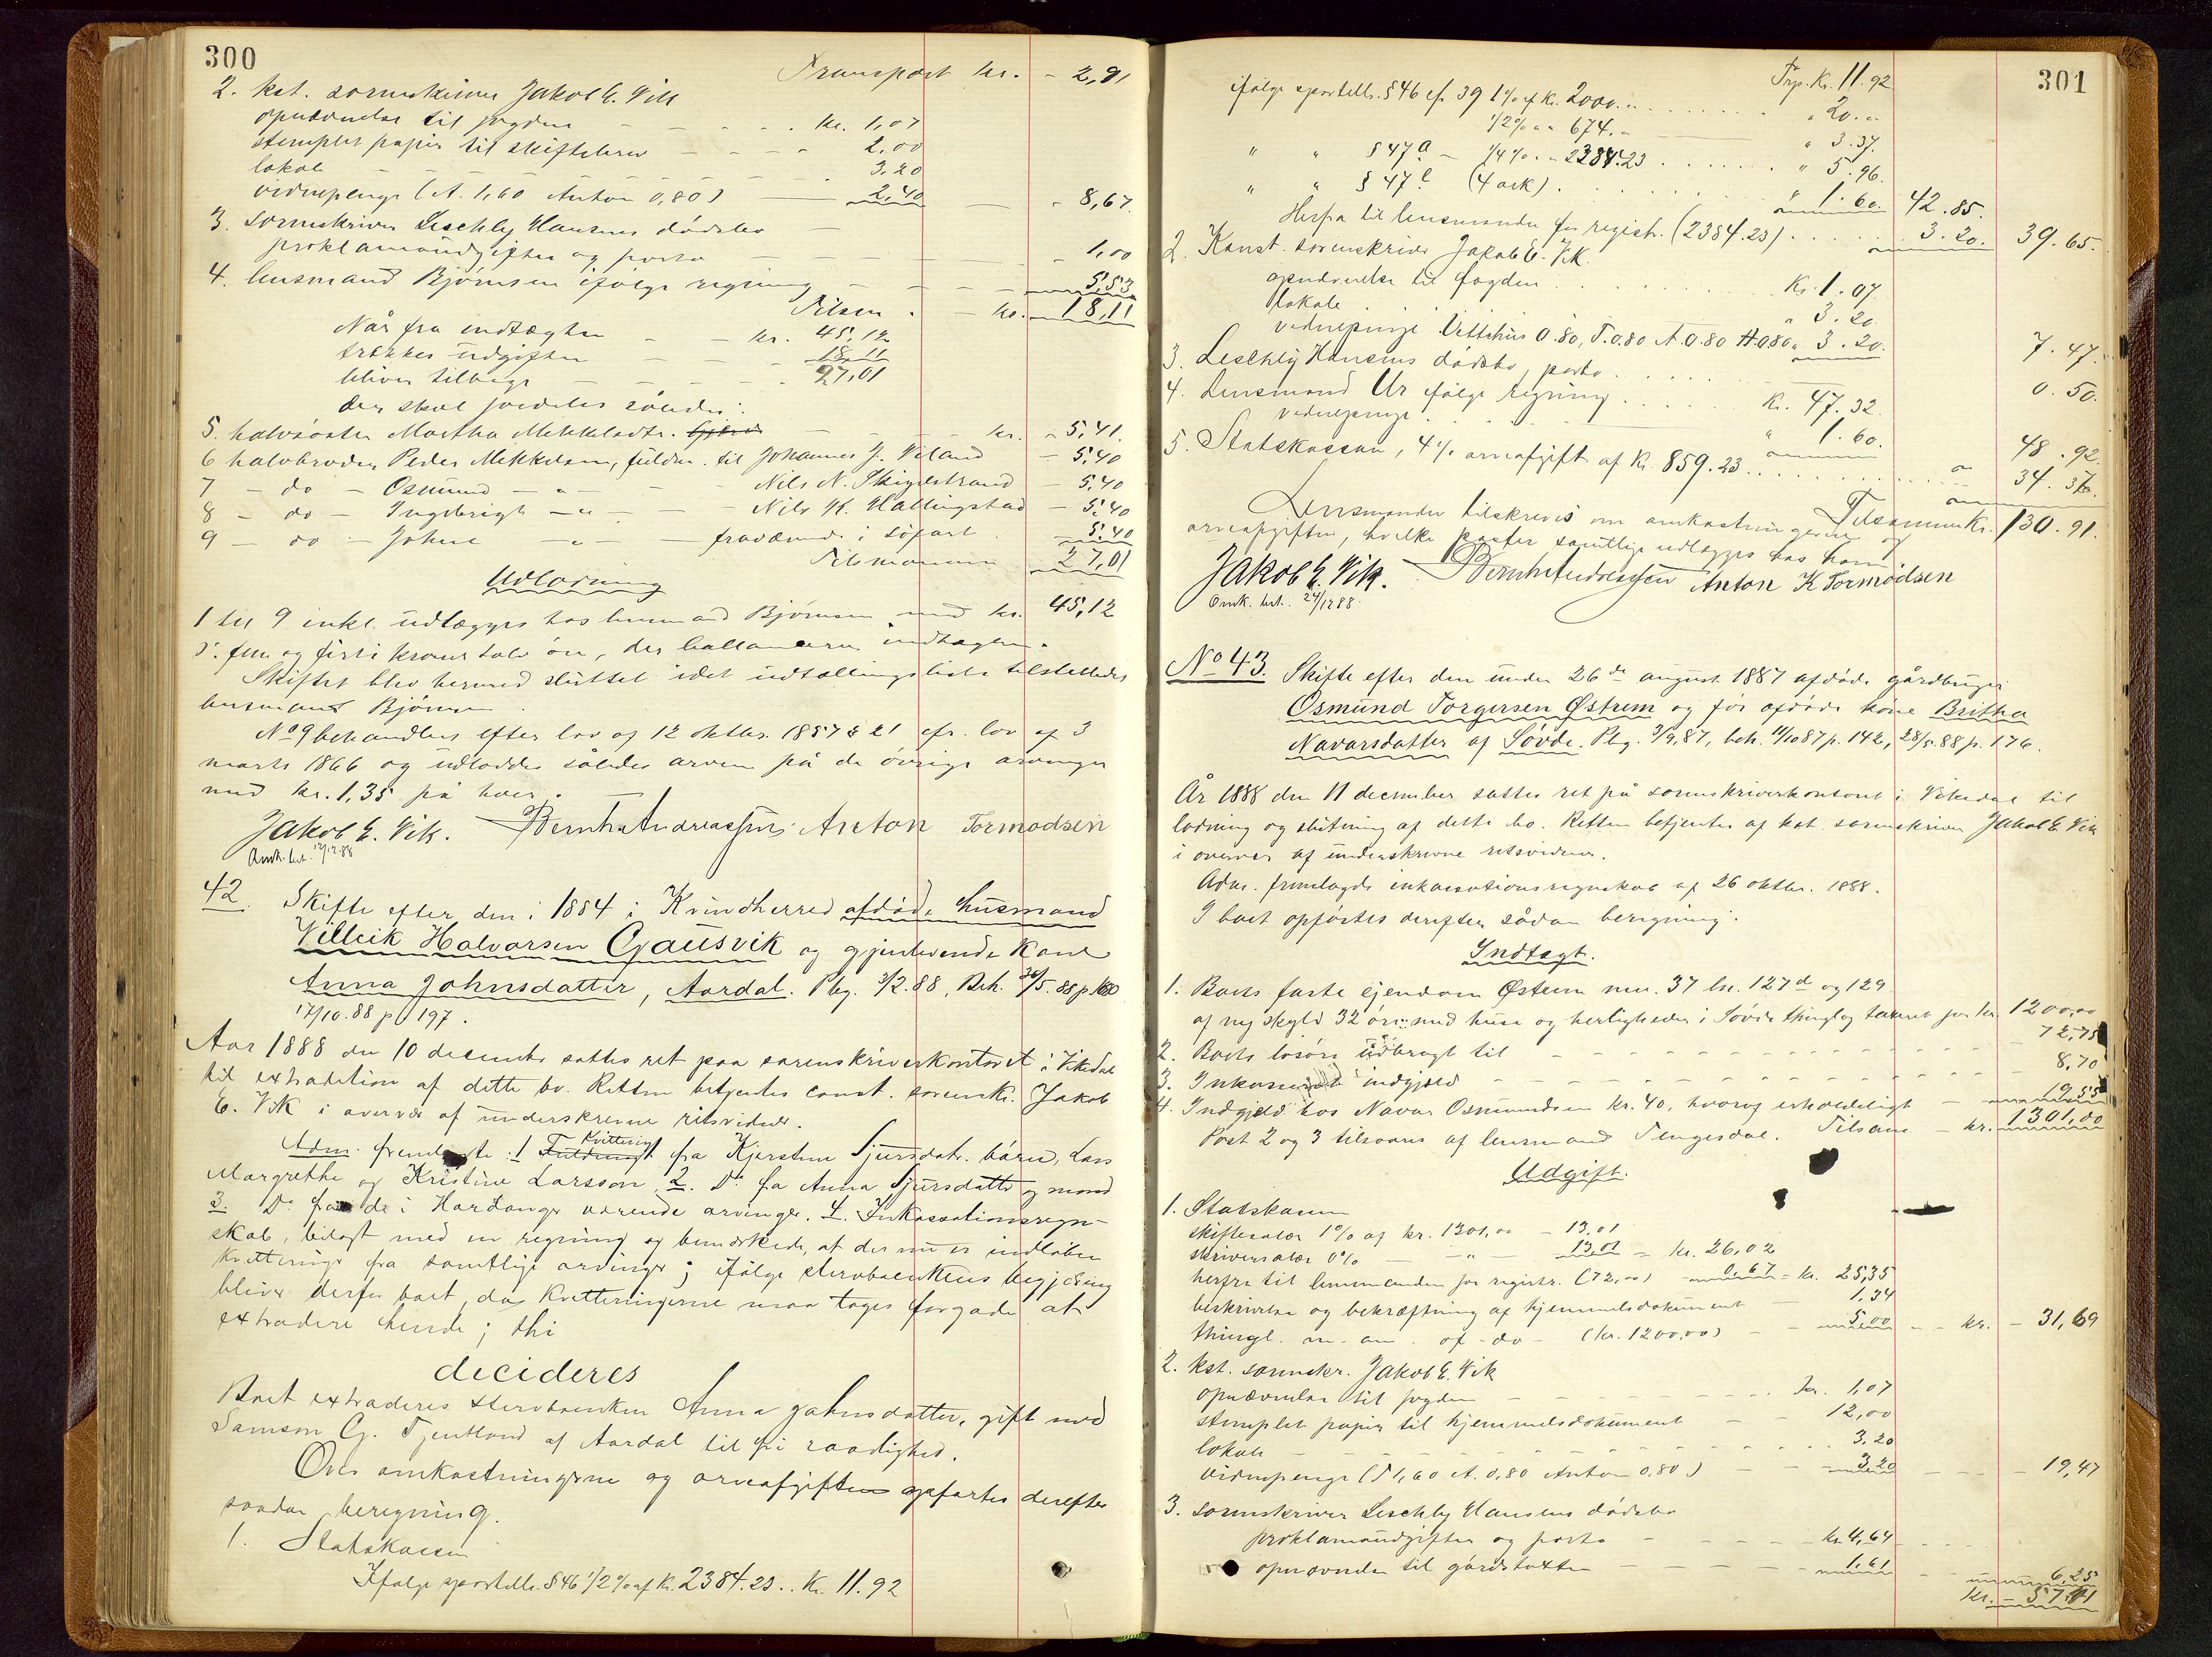 300
Transport kr. - 2,91
2. kst. sorenskriver Jakob E. Vik
opnævnelse til fogden - - - - kr. 1,07
stemplet papir til skiftebrev - - - 2,00
lokale - - - - 3,20
vidnepenge (A. 1,60 Anton 0,80) - 2,40 - - 8,67
3. sorenskriver Leschly Hansens dødsbo -
proklamaudgifter og porto - - - 1,00
4. lensmand Bjørnsen ifølge regning - - - 5,53
Tilsam. - kr. 18,11
Når fra indtægten - - kr. 45,12
trækkes udgiften - - - 18,11
bliver tilbage - - - - 27,01
der skal fordeles således:
5. halvsøster Martha Mikkelsdtr. - - kr. - 5,41.
6 halvbroder Peder Mikkelsen, fuldm. til Johannes J. Viland - 5,40
7 - do - Osmund - " - - - Nils N. - 5,40
8 - do - Ingebrigt - " - - - Nils K. Hallingstad - 5,40
9 - do - Johne - " - - fraværende i søfart. 5,40
Tilsammen 27,01
Udlodning
1 til 9 inkl. udlægges hos lensmand Bjørnsen med kr. 45,12
ɔ: fem og firti kroner tolv øre, der ballancerer indtægten.
Skiftet blev hermed sluttet idet udtællingsliste tilstilledes
lensmand Bjørnsen.
No 9 behandles efter lov af 12 oktbr. 1857 § 21 cfr. lov af 3
marts 1866 og udloddes således arven på de øvrige arvinger
med kr. 1,35 på hver.
Jakob E. Vik. Bernt Andreassen Anton Tormodsen
Omk. bet. 12/12 88
42. Skifte efter den i 1884 i Kvindherred afdøde husmand
Villeik Halvorsen Gausvik og gjenlevende kone
Anna Johnsdatter, Aardal. Plg. 3/2.88, Beh. 26/5.88 p. 180
17/10.88 p 197.
Aar 1888 den 10 december sattes ret paa sorenskriverkontoret i Vikedal
til extradition af dette bo. Retten betjentes const. sorenskr. Jakob
E. Vik i overvær af underskrevne retsvidner.
Adm. fremlagte: 1 Kvittering fra Kjersten Sjursdatr. børn, Lars
Margrethe og Kristine Larsson, 2. Do fra Anna Sjursdatter og mand
3. Do fra de i Hardanger værende arvinger. 4. Inkassationsregn-
skab, bilagt med en regning og bemærkede, at der nu er indløbne
kvitteringer fra samtlige arvinger; ifølge stervboenkens begjæring
bliver derfor boet, da kvitteringerne maa tages forgode at
extradere hende; thi
decideres
Boet extraderes stervboenken Anna Johnsdatter, gift med
Samson G. Tjentland af Aardal til fri raadighed.
Over omkostningerne og arveafgiften opførtes derefter
saadan beregning.
1. Statskassen
Ifølge sportellov. § 46 1/2 % af Kr. 2384.23 .. Kr. 11.92
301
Trp. Kr. 11.92
ifølge sportellov. § 46 cfr 39 1% af Kr. 2000. " . . . . " 20. "
1/2 % " " 674. " " 3.37.
" " § 47 a - 1/4 % " " 2384.23 . . . . " 5.96.
" " § 47 c (4 ark) . . . . " 1.60. 42.85.
Herfra til lensmanden for registr. (2384.23) . . . . 3.20. 39.65.
2. Konst. sorenskriver Jakob E. Vik.
opnævnelse til fogden . . . . Kr. 1.07.
Lokale " 3.20.
vidnepenge Vettehus 0.80, T. 0.80 A. 0.80 H. 0.80 " 3.20. 7.47.
3. Leschly Hansens dødsbo, porto . . . . 0.50.
4. Lensmand Ur ifølge regning . . . . Kr. 47.32.
vidnepenge . . . . " 1.60. 48.92.
5. Statskassen, 4% arveafgift af Kr. 859.23 . . . . " 34.37.
Tilsammen Kr. 130.91.
Lensmanden tilskrives om omkostningerne og
arveafgiften, hvilke poster samtlige udlægges hos ham.
Jakob E. Vik. Bernt Andreassen Anton K Tormodsen
Omk. bet. 24/12 88.
No 43. Skifte efter den under 26de august 1887 afdøde gårdbruger
Osmund Torgersen Østrem og før afdøde kone Britha
Navarsdatter af Søvde. Plg. 3/9.87, beh. 11/10 87 p. 142, 28/5.88 p. 176.
År 1888 den 11 december sattes ret på sorenskriverkontoret i Vikedal til
lodning og slutning af dette bo. Retten betjentes af kst. sorenskriver Jakob E. Vik
i overvær af underskrevne retsvidner.
Adm. fremlagde inkassationsregnskab af 26 oktbr. 1888.
I boet opførtes derefter sådan beregning:
Indtægt.
1. Boets faste ejendom Østrem mn. 37 ln. 127d og 129
af ny skyld 32 øre med huse og herligheder i Søvde thinglag taxeret for kr. 1200,00
2. Boets løsøre udbragt til - - - - 72,75
3. Inkasseret indgjæld - - - - 8,70
4. Indgjæld hos Navar Osmundsen kr. 40, hvoraf erholdeligt - 19,55
Post 2 og 3 tilsvares af lensmand Tengesdal. Tilsam. - kr. 1301,00
Udgift.
1. Statskassen
skiftesalær 1% af kr. 1301,00 - 13,01
skriversalær 0% - " - 13,01 = kr. 26,02
herfra til lensmanden for registr. (72,00) - 0,67 = kr. 25,35
beskrivelse og bekræftning af hjemmelsdokument - 1,34
thingl. m. an. af - do - (kr. 1200,00) - - 5,00 - - kr. - 31,69
2. kst. sorenskr. Jakob E. Vik
opnævnelse til fogden - - - - kr. 1,07
stemplet papir til hjemmelsdokument - - 12,00
lokale - - - - 3,20
vidnepenge (T 1,60 A. 0,80 Anton 0,80) - - 3,20 - - - 19,47
3. sorenskriver Leschly Hansens dødsbo
proklamaudgifter og porto - - - - kr. 4,64
opnævnelse til gårdstaxten - - - - 1,61 - - 6,25
kr. - 57,41